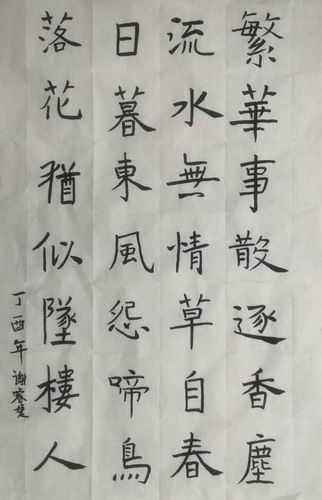 繁華事散逐香塵
流水無情草自春
日暮東風怨啼鳥
落花猶似墜樓人
丁酉年謝睿